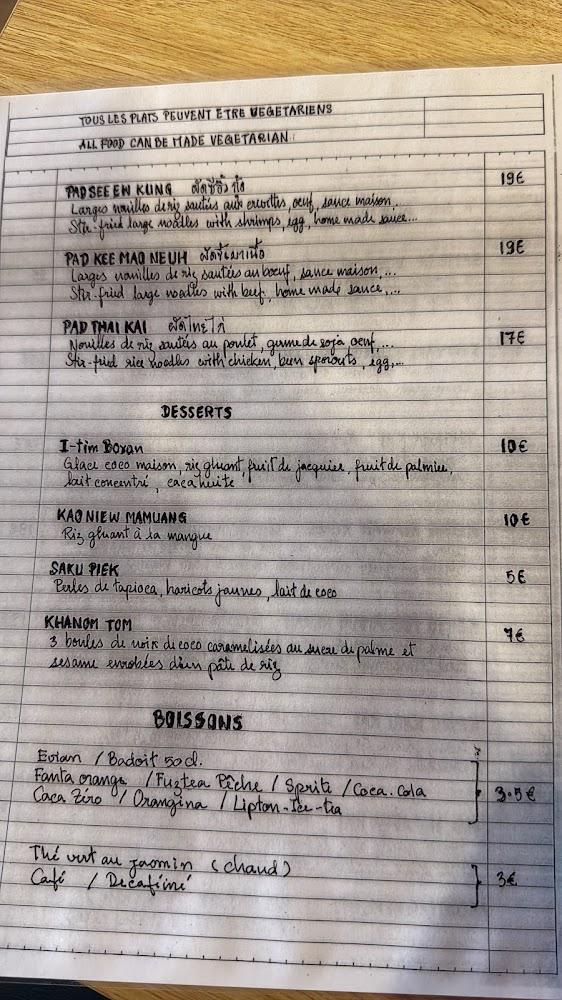 TOUS LES PLATS PEUVENT ETRE VEGETARIENS
ALL FOOD CAN BE MADE VEGETARIAN
PAD SEE EW KUNG ผัดซีอิ๊วกุ้ง 19€
Larges nouilles de riz sautées aux crevettes, oeuf, sauce maison...
Stir-fried large noodles with shrimps, egg, home made sauce...
PAD KEE MAO NEUH ผัดขี้เมาเนื้อ 19€
Larges nouilles de riz sautées au boeuf, sauce maison,...
Stir-fried large noodles with beef, home made sauce,...
PAD THAI KAI ผัดไทยไก่ 17€
Nouilles de riz sautées au poulet, germe de soja oeuf,...
Stir-fried rice noodles with chicken, been sporouts, egg,...
DESSERTS
I-tim Boran 10€
Glace coco maison, riz gluant, fruit de jacquier, fruit de palmier,
lait concentré, cacahuète
KAO NIEW MAMUANG 10€
Riz gluant à la mangue
SAKU PIEK 5€
Perles de tapioca, haricots jaunes, lait de coco
KHANOM TOM 7€
3 boules de noix de coco caramelisées au sucre de palme et
sesame enrobées d'un pâte de riz
BOISSONS
Evian / Badoit 50 cl.
Fanta orange / Fuztea Pêche / Sprite / Coca.Cola
Coca Zéro / Orangina / Lipton-Ice-tea 3.5€
Thé vert au jasmin (chaud)
Café / Decaféiné 3€